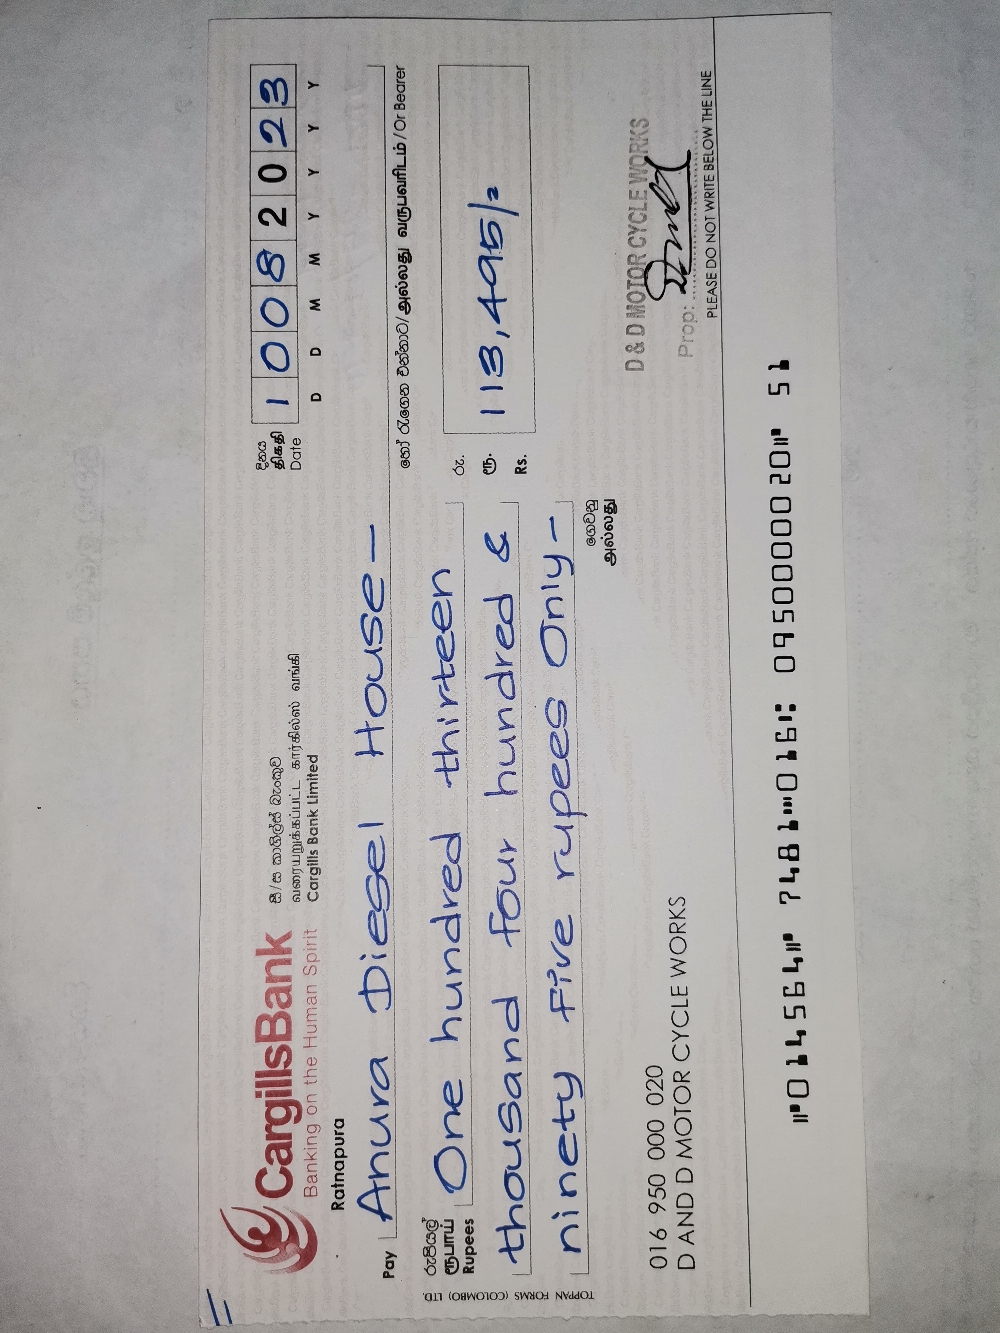 CargillsBank
Banking on the Human Spirit
සී/ස කාගිල්ස් බැංකුව
வரையறுக்கப்பட்ட கார்கில்ஸ் வங்கி
Cargills Bank Limited
Ratnapura
දිනය
திகதி
Date
1 0 0 8 2 0 2 3
D D M M Y Y Y Y
Pay Anura Diesel House —
හෝ රැගෙන එන්නාට/அல்லது வருபவரிடம்/Or Bearer
රුපියල්
ரூபாய்
Rupees
One hundred thirteen
thousand four hundred &
ninety five rupees Only —
රු.
ரூ.
Rs.
113,495/=
ගෙවනු
அல்லது
TOPPAN FORMS (COLOMBO) LTD.
016 950 000 020
D AND D MOTOR CYCLE WORKS
D & D MOTOR CYCLE WORKS
Prop: ..............
PLEASE DO NOT WRITE BELOW THE LINE
⑈014564⑈ 7481⑉016⑆ 0950000020⑈ 51